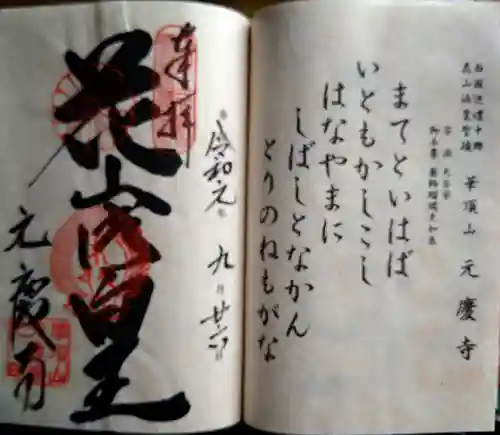 西國巡禮中興
花山法皇聖蹟
華頂山 元慶寺
宗派 天台宗
御本尊 藥師瑠璃光如来
まてといはば
いともかしこし
はなやまに
しばしとなかん
とりのねもがな
奉拝
令和元年
九月廿六日
花山法皇
元慶寺